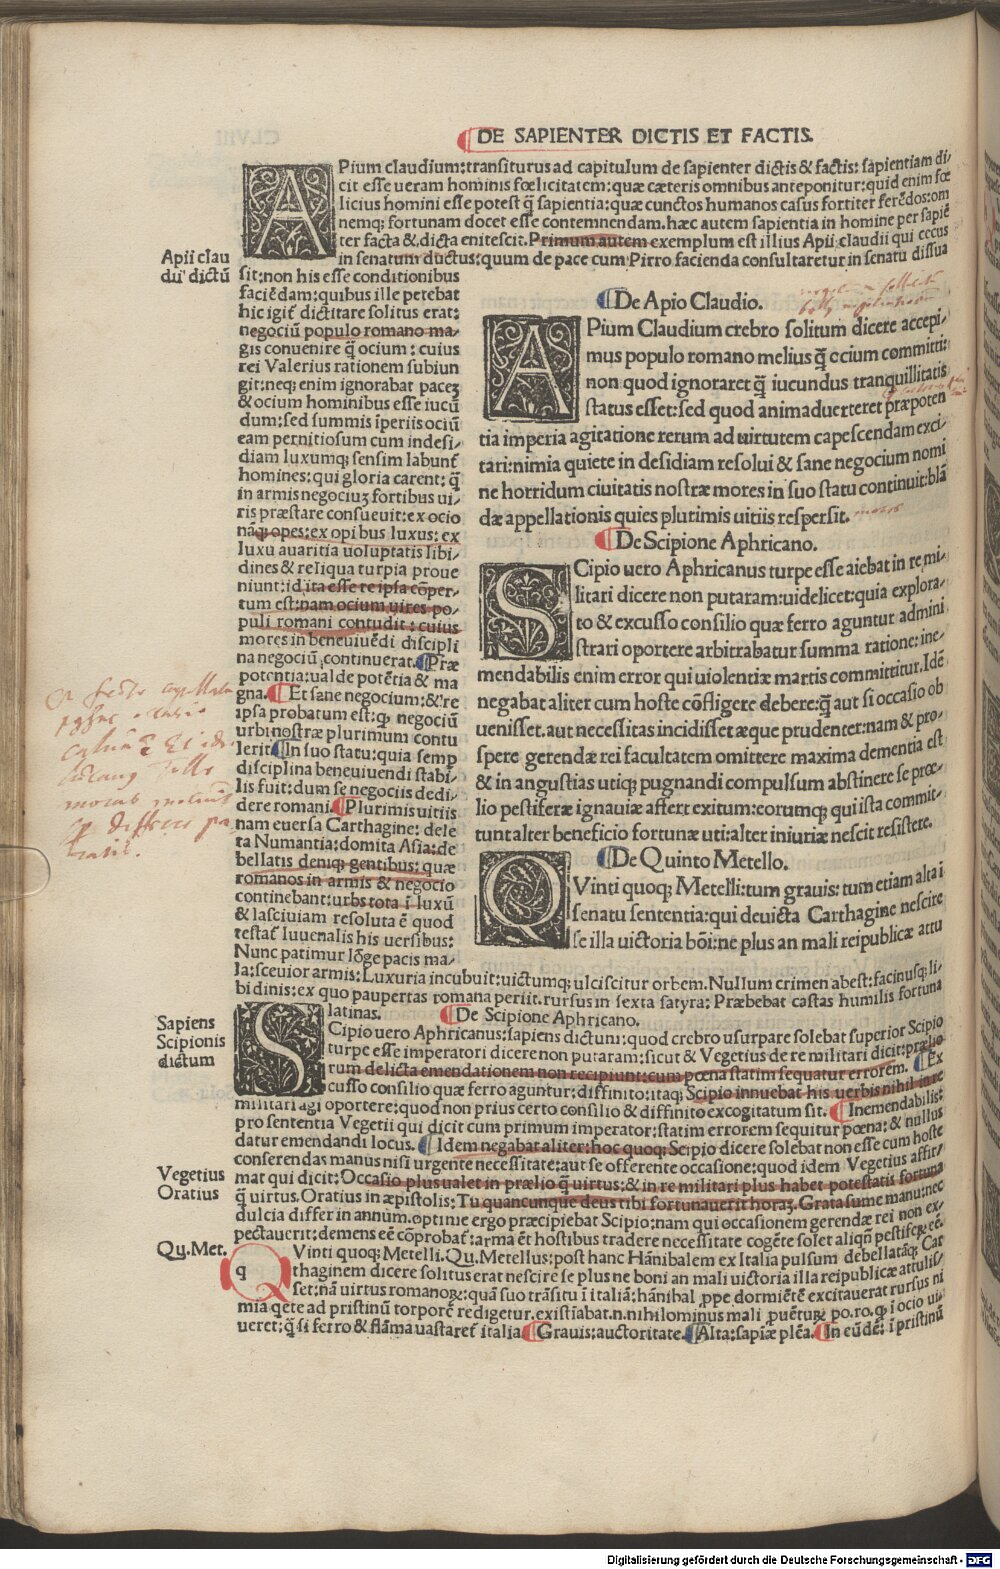 DE SAPIENTER DICTIS ET FACTIS.
APium claudium: transiturus ad capitulum de sapienter dictis & factis: sapientiam di-
cit esse ueram hominis fœlicitatem: quæ cæteris omnibus anteponitur: quid enim fœ
licius homini esse potest q̃ sapientia: quæ cunctos humanos casus fortiter ferēdos: om
nemq; fortunam docet esse contemnendam. hæc autem sapientia in homine per sapiē
ter facta & dicta enitescit. Primum autem exemplum est illius Apii claudii qui cecus
in senatum ductus: quum de pace cum Pirro facienda consultaretur in senatu dissua
Apii clau
dii dictū
sit: non his esse conditionibus
faciēdam: quibus ille petebat
hic igit̃ dictitare solitus erat:
negociū populo romano ma-
gis conuenire q̃ ocium: cuius
rei Valerius rationem subiun
git: neq; enim ignorabat paceȝ
& ocium hominibus esse iucū
dum; sed summis īperiis ociū
eam pernitiosum cum indesi-
diam luxumq; sensim labunt̃
homines: qui gloria carent: q̃
in armis negociuȝ fortibus ui-
ris præstare consueuit: ex ocio
nāq; opes: ex opibus luxus: ex
luxu auaritia uoluptatis libi-
dines & reliqua turpia proue
niunt: id ita esse re ipsa cōper-
tum est: nam ocium uires po-
puli romani contudit: cuius
mores in beneuiuēdi discipli
na negociū continuerat. ¶Præ
potentia: ualde potētia & ma
gna. ¶Et sane negocium: & re
ipsa probatum est: q negociū
urbi nostræ plurimum contu
lerit ¶In suo statu: quia semp
disciplina beneuiuendi stabi-
lis fuit: dum se negociis dedi-
dere romani. ¶Plurimis uitiis
nam euersa Carthagine: dele
ta Numantia: domita Asia: de
bellatis deniq; gentibus: quæ
romanos in armis & negocio
continebant: urbs tota ī luxū
& lasciuiam resoluta ē quod
testat̃ Iuuenalis his uersibus:
Nunc patimur lōge pacis ma-
la: sceuior armis: Luxuria incubuit: uictumq; ulciscitur orbem. Nullum crimen abest: facinusq; li-
bidinis: ex quo paupertas romana periit. rursus in sexta satyra: Præbebat castas humilis fortuna
latinas.
¶De Apio Claudio.
APium Claudium crebro solitum dicere accepi-
mus populo romano melius q̃ ocium committi:
non quod ignoraret q̃ iucundus tranquillitatis
status esset: sed quod animaduerteret præpoten
tia imperia agitatione rerum ad uirtutem capescendam exci-
tari: nimia quiete in desidiam resolui & sane negocium nomi
ne horridum ciuitatis nostræ mores in suo statu continuit: blā
dæ appellationis quies plurimis uitiis respersit.
¶De Scipione Aphricano.
SCipio uero Aphricanus turpe esse aiebat in re mi-
litari dicere non putaram: uidelicet: quia explora-
to & excusso consilio quæ ferro aguntur admini
strari oportere arbitrabatur summa ratione: ine-
mendabilis enim error qui uiolentiæ martis committitur. Idē
negabat aliter cum hoste cōfligere debere: q̃ aut si occasio ob
uenisset. aut necessitas incidisset æque prudenter: nam & pro-
spere gerendæ rei facultatem omittere maxima dementia est
& in angustias utiq; pugnandi compulsum abstinere se prœ-
lio pestiferæ ignauiæ affert exitum: eorumq; qui ista commit-
tunt alter beneficio fortunæ uti: alter iniuriæ nescit resistere.
¶De Quinto Metello.
QVinti quoq; Metelli: tum grauis: tum etiam alta ī
senatu sententia: qui deuicta Carthagine nescire
se illa uictoria bōi: ne plus an mali reipublicæ attu
¶De Scipione Aphricano.
Sapiens
Scipionis
dictum
SCipio uero Aphricanus: sapiens dictum: quod crebro usurpare solebat superior Scipio
turpe esse imperatori dicere non putaram: sicut & Vegetius de re militari dicit: prælio
rum delicta emendationem non recipiunt: cum pœna statim sequatur errorem. ¶Ex
cusso consilio quæ ferro aguntur: diffinito: itaq; Scipio innuebat his uerbis nihil in re
militari agi oportere: quod non prius certo consilio & diffinito excogitatum sit. ¶Inemendabilis:
pro sententia Vegetii qui dicit cum primum imperator: statim errorem sequitur pœna: & nullus
datur emendandi locus. ¶Idem negabat aliter: hoc quoq; Scipio dicere solebat non esse cum hoste
conserendas manus nisi urgente necessitate: aut se offerente occasione: quod idem Vegetius affir-
mat qui dicit: Occasio plus ualet in prælio q̃ uirtus: & in re militari plus habet potestatis fortuna
q̃ uirtus. Oratius in æpistolis: Tu quancunque deus tibi fortunauerit horaȝ. Grata sume manu: nec
dulcia differ in annum. optime ergo præcipiebat Scipio: nam qui occasionem gerendæ rei non ex-
pectauerit: demens eē cōprobat̃: arma ēt hostibus tradere necessitate cogēte solet aliqñ pestiferȩ eē.
Vegetius
Oratius
Qu. Met.
QVinti quoq; Metelli. Qu. Metellus: post hanc Hānibalem ex Italia pulsum debellatāq; Car
thaginem dicere solitus erat nescire se plus ne boni an mali uictoria illa reipublicæ attulis-
set: nā uirtus romanoꝝ: quā suo trāsitu ī italiā: hānibal ꝓpe dormiētē excitauerat rursus ni
mia qete ad pristinū torporē redigetur. existīabat. n. nihilominus mali ꝓuētuꝝ po. ro. q ī ocio ui-
ueret: q̃ si ferro & flāma uastaret̃ italia ¶Grauis: auctoritate. ¶Alta: sapiæ plēa. ¶In eūdē: ī pristinū
Digitalisierung gefördert durch die Deutsche Forschungsgemeinschaft - DFG